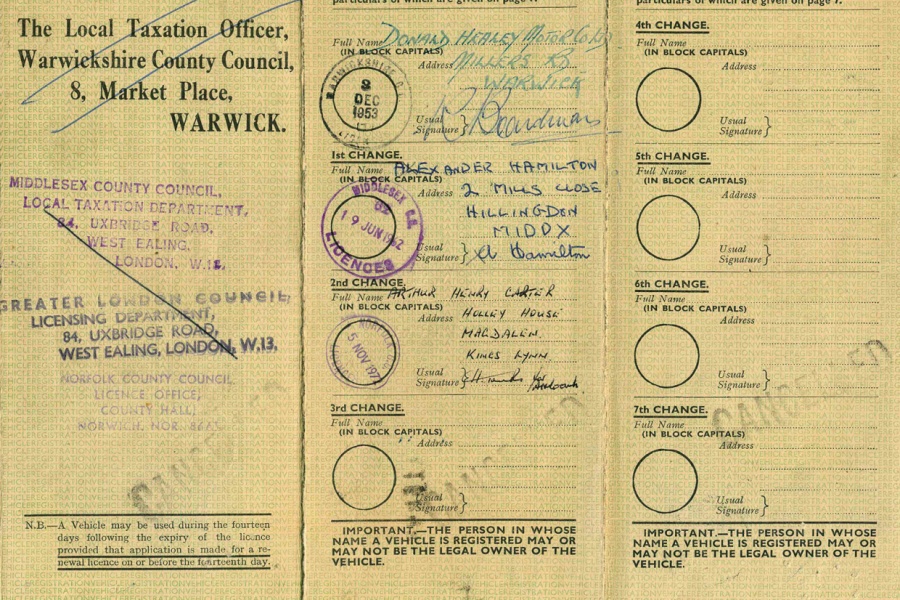 The Local Taxation Officer,
Warwickshire County Council,
8, Market Place,
WARWICK.
MIDDLESEX COUNTY COUNCIL,
LOCAL TAXATION DEPARTMENT,
84, UXBRIDGE ROAD,
WEST EALING,
LONDON, W.13.
GREATER LONDON COUNCIL,
LICENSING DEPARTMENT,
84, UXBRIDGE ROAD,
WEST EALING, LONDON, W.13.
NORFOLK COUNTY COUNCIL
LICENCE OFFICE,
COUNTY HALL,
NORWICH, NOR.
CANCELLED
N.B.—A Vehicle may be used during the fourteen
days following the expiry of the licence
provided that application is made for a re-
newal licence on or before the fourteenth day.
particulars of which are given on page
Full Name DONALD HEALEY MOTOR CO LTD
(IN BLOCK CAPITALS)
Address MILLERS RD
WARWICK
WARWICKSHIRE
DEC
1953
Usual
Signature} Boardman
1st CHANGE.
Full Name ALEXANDER HAMILTON
(IN BLOCK CAPITALS)
Address 2 MILLS CLOSE
HILLINGDON
MIDDX
MIDDLESEX C.C.
19 JUN 1962
LICENCES
Usual
Signature} A Hamilton
2nd CHANGE.
Full Name ARTHUR HENRY CARTER
(IN BLOCK CAPITALS)
Address HOLLEY HOUSE
MAGDALEN.
KINGS LYNN.
5 NOV 197
Usual
Signature}
3rd CHANGE.
Full Name
(IN BLOCK CAPITALS)
Address
Usual
Signature}
CANCELLED
IMPORTANT.—THE PERSON IN WHOSE
NAME A VEHICLE IS REGISTERED MAY OR
MAY NOT BE THE LEGAL OWNER OF THE
VEHICLE.
particulars of which are given on page 7.
4th CHANGE.
Full Name
(IN BLOCK CAPITALS)
Address
Usual
Signature}
5th CHANGE.
Full Name
(IN BLOCK CAPITALS)
Address
Usual
Signature}
6th CHANGE.
Full Name
(IN BLOCK CAPITALS)
Address
Usual
Signature}
CANCELLED
7th CHANGE.
Full Name
(IN BLOCK CAPITALS)
Address
Usual
Signature}
IMPORTANT.—THE PERSON IN WHOSE
NAME A VEHICLE IS REGISTERED MAY OR
MAY NOT BE THE LEGAL OWNER OF THE
VEHICLE.